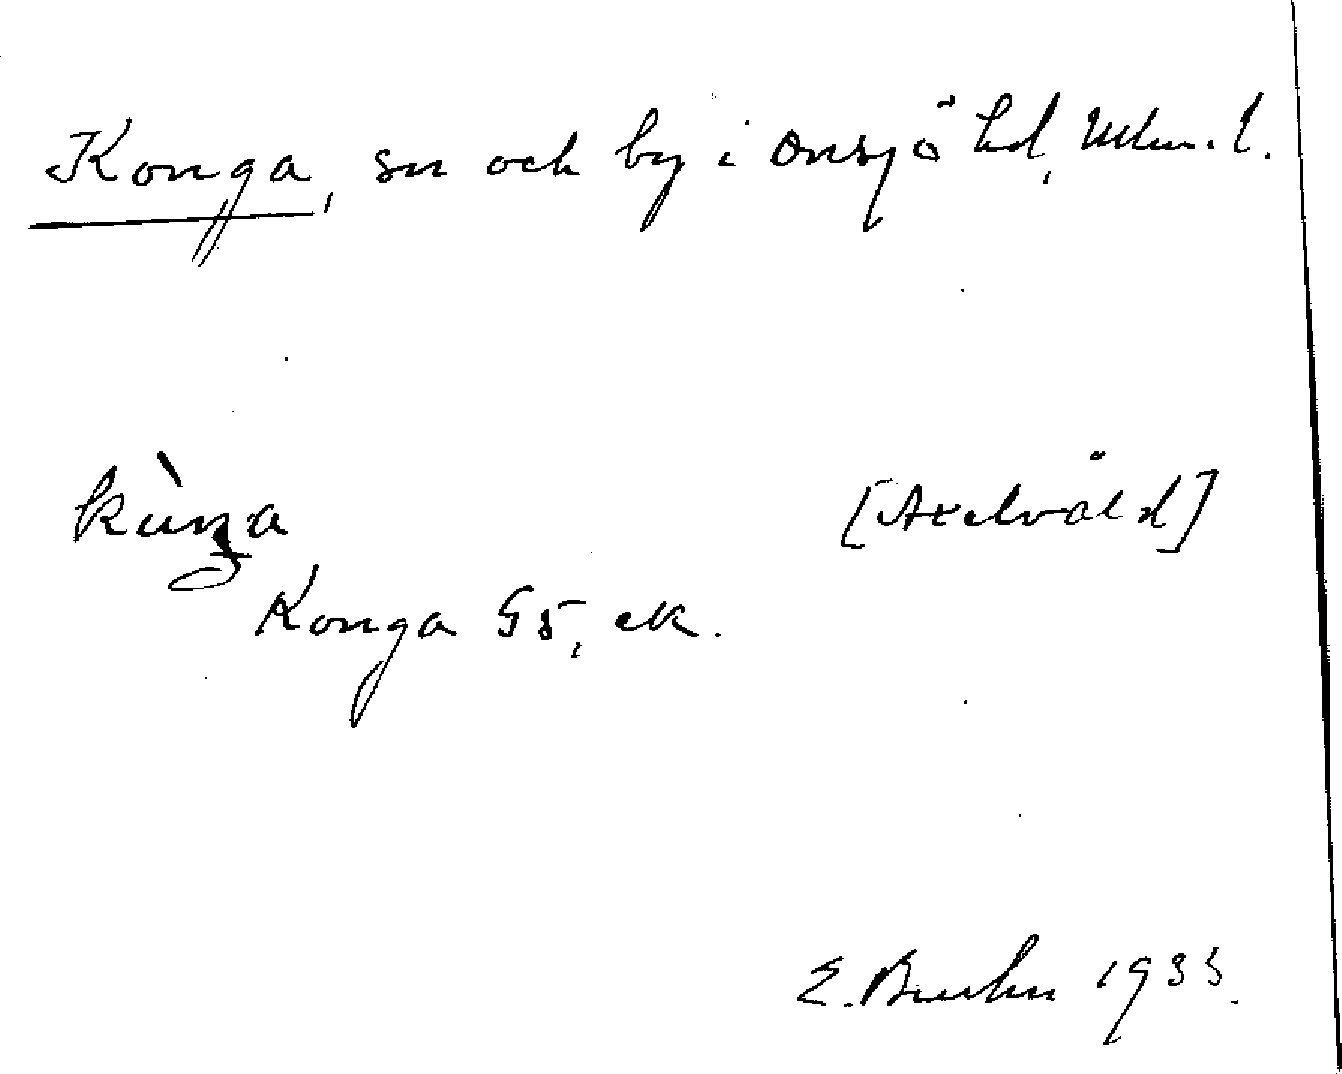 Konga, sn och by i Onsjö hd, Mlm. l.
kùŋa [Axelvåld]
Konga G5, ek.
E. Bruhn 1933.